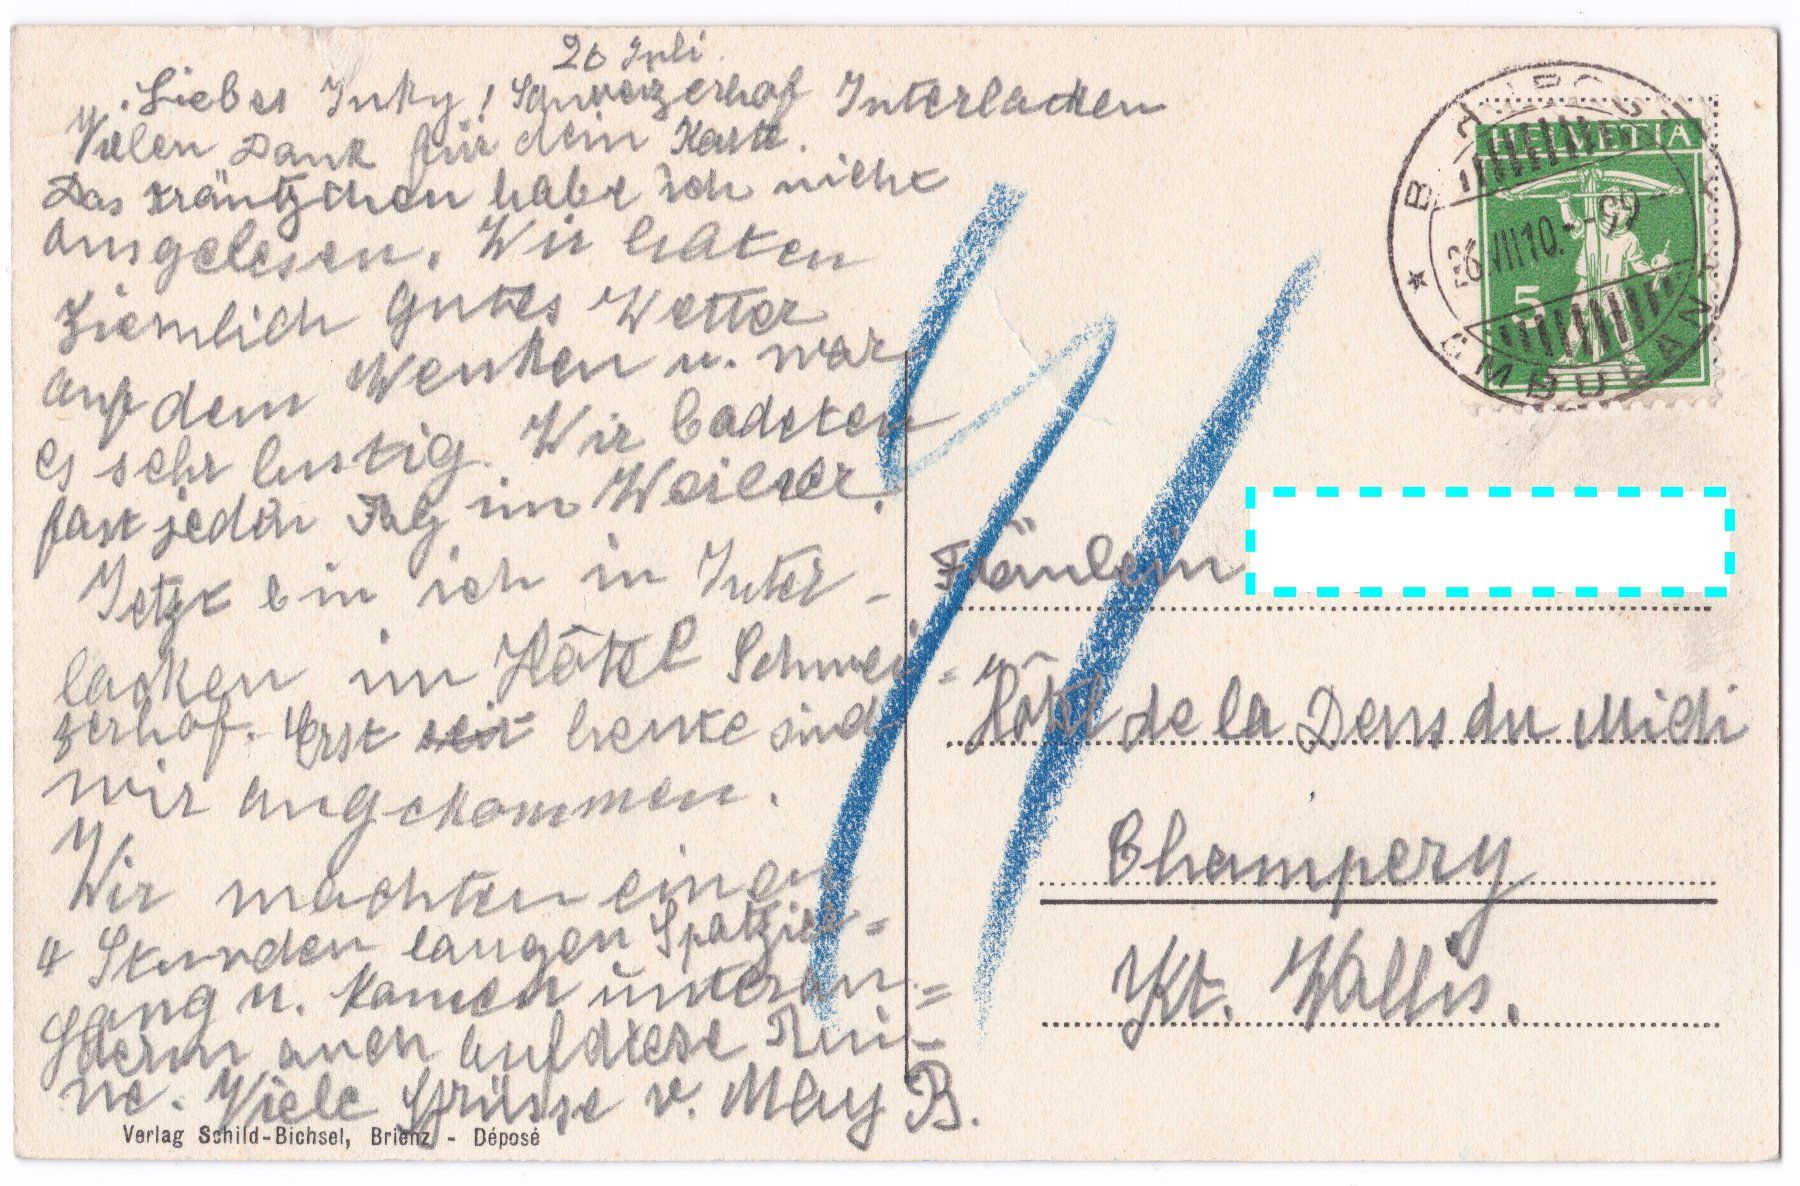 26 Juli.
Liebes Inky! Schweizerhof Interlacken
Vielen Dank für dein Karte.
Das Kräntzchen habe ich nicht
ausgelesen. Wir hatten
ziemlich gutes Wetter
auf dem Wenken u. war
es sehr lustig. Wir badeten
fast jeden Tag im Weiher.
Jetzt bin ich in Inter-
lacken im Hôtel Schwei=
zerhof. Erst seit heute sind
wir angekommen.
Wir machten einen
4 Stunden langen Spatzier=
gang u. kamen unteran=
derm auch auf diese Rui-
ne. Viele Grüsse v. May B.
Verlag Schild-Bichsel, Brienz - Déposé
HELVETIA
5
AMBULANT
VIII 10.
Fräulein
Hôtel de la Dens du Midi
Champery
Kt. Wallis.